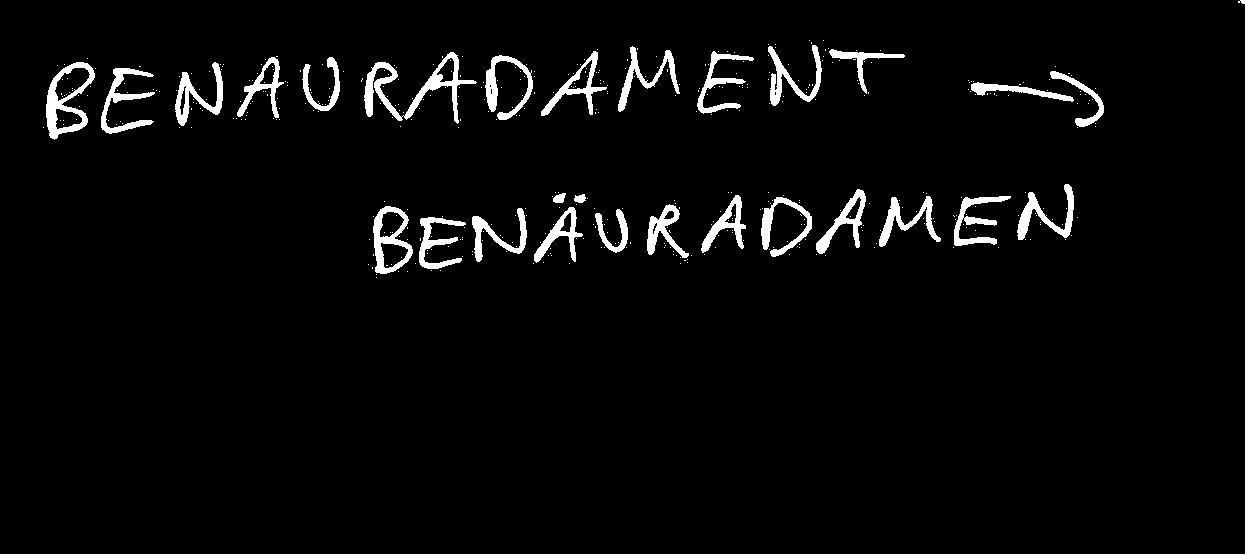 BENAURADAMENT →
BENÄURADAMEN